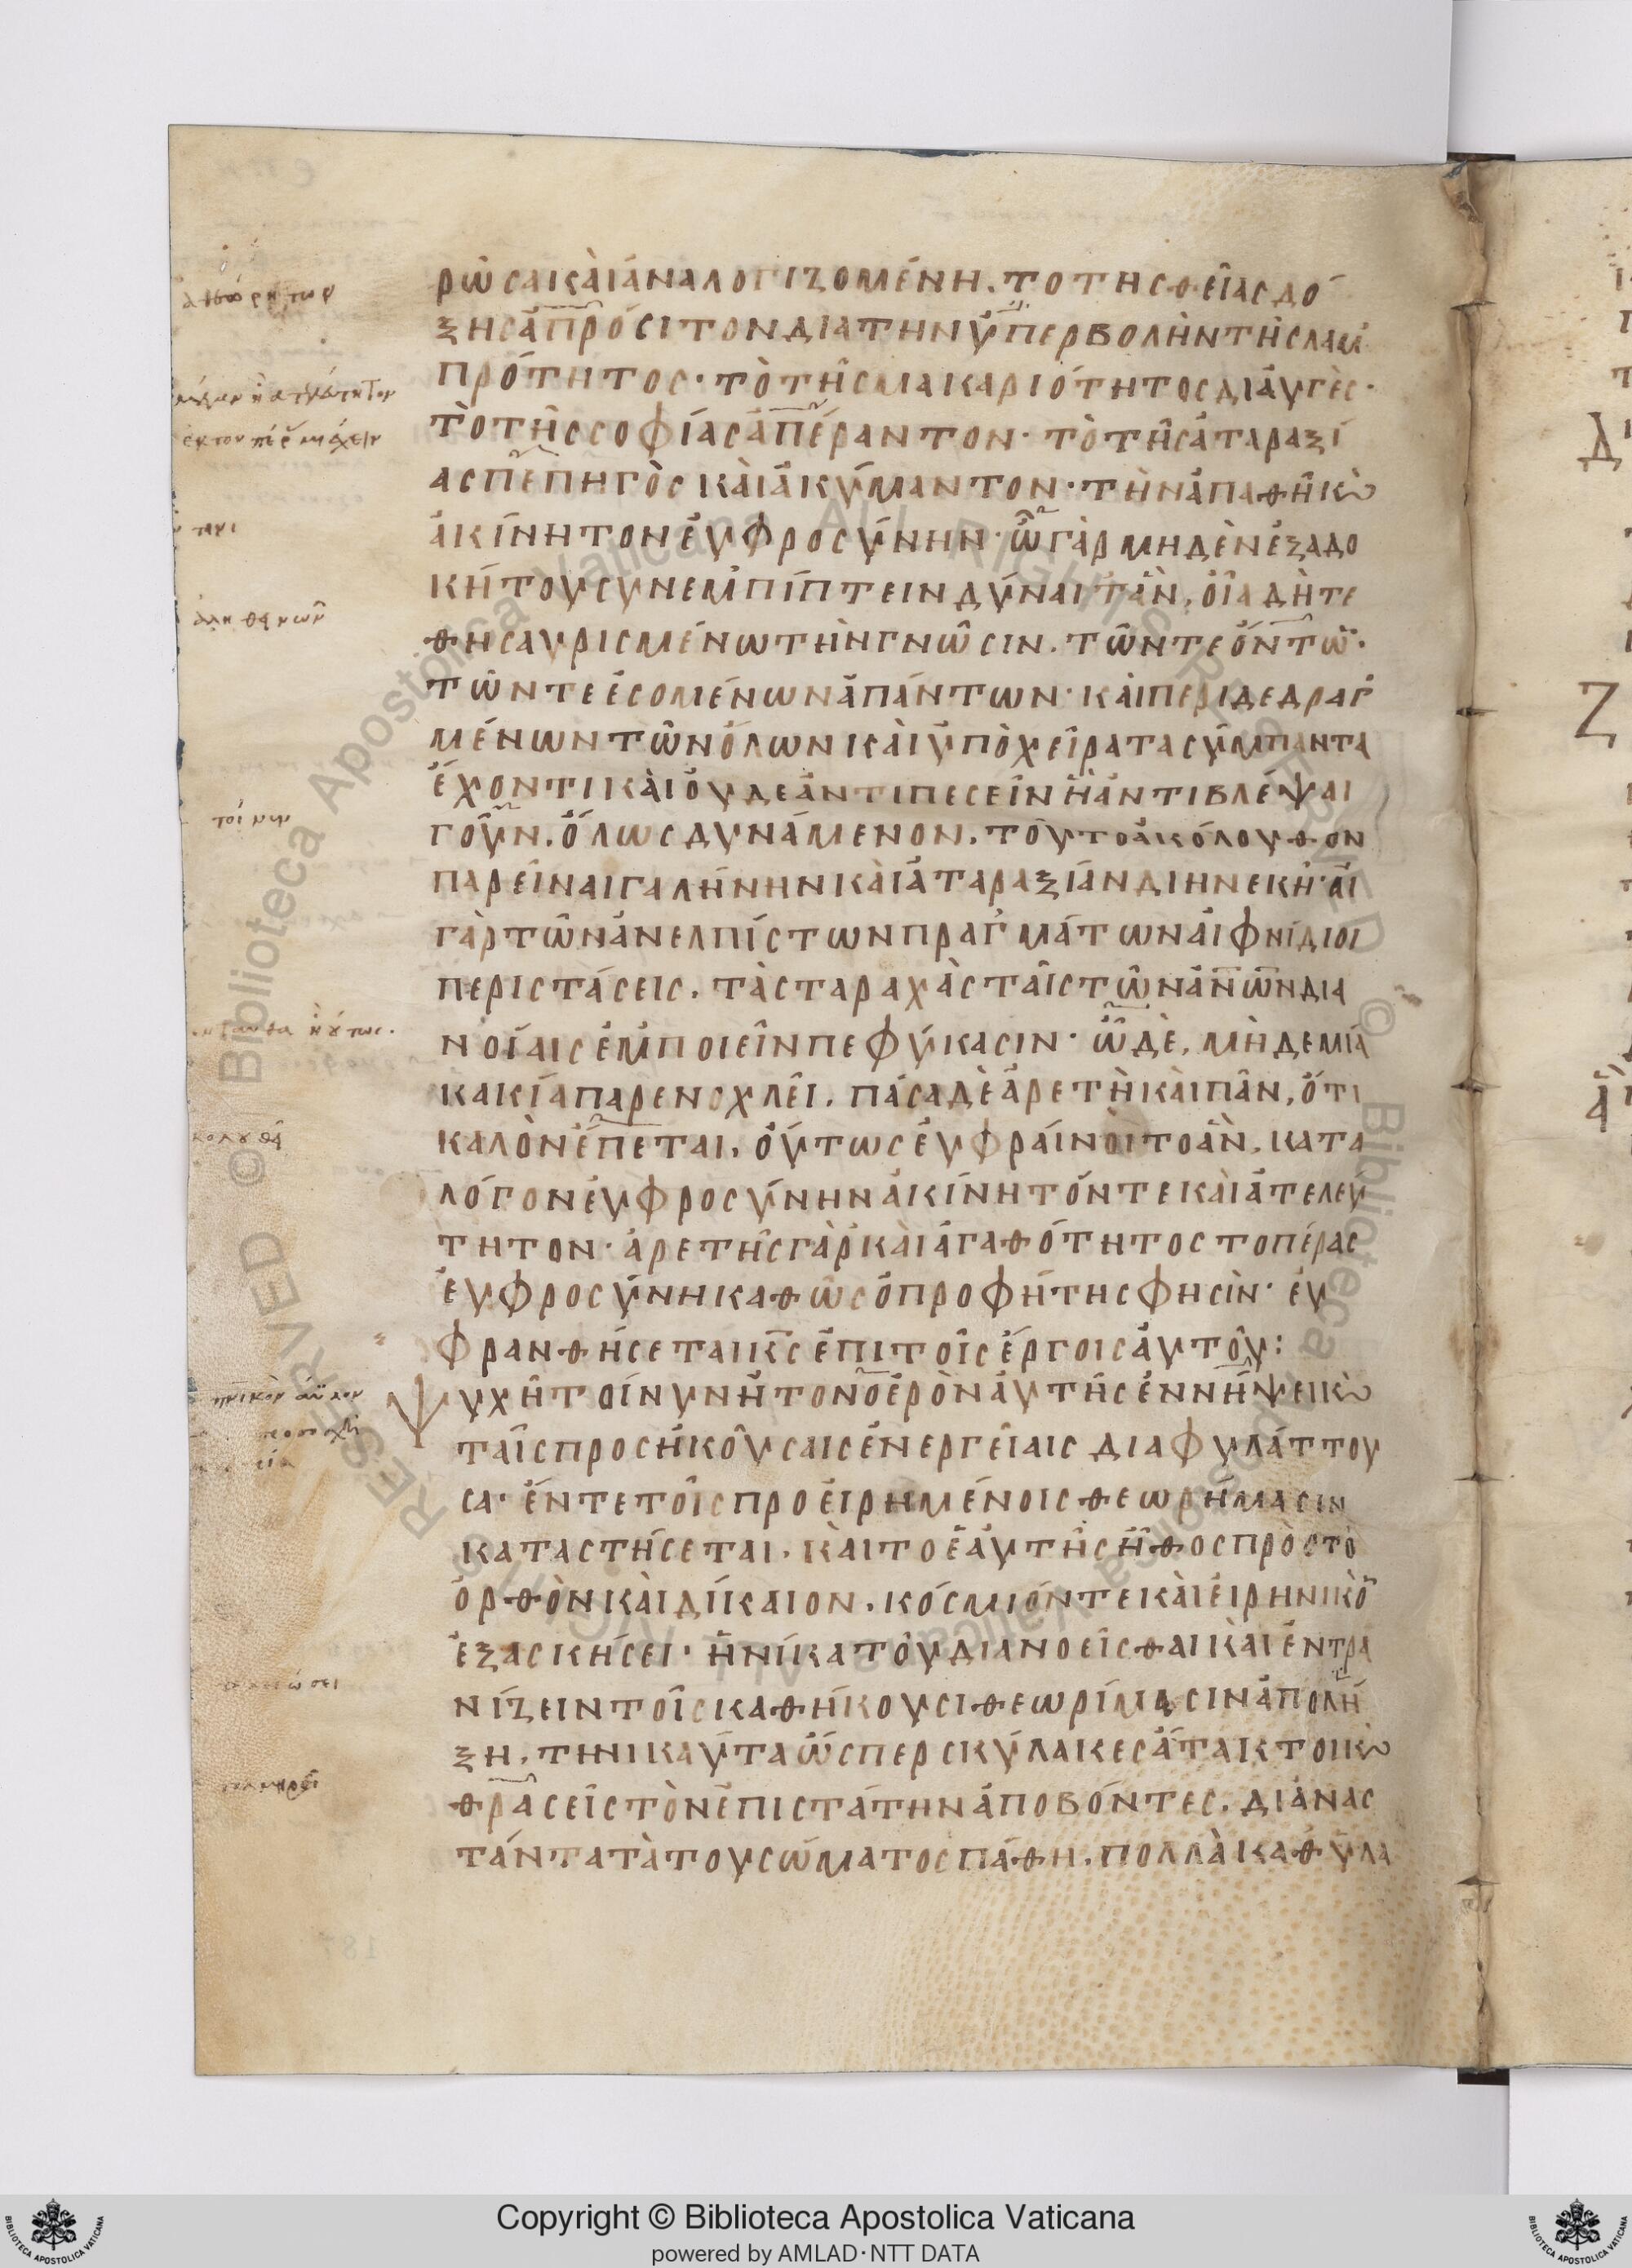 ρῶσα καὶ ἀναλογιζομένη. το της θείας δό
ξης ἀπρόσιτον δια την ὑπερβολὴν τῆς λαμ
πρότητος· τὸ τῆς μακαριότητος διαυγὲς·
τὸ τῆς σοφίας ἀπέραντον· τὸ τῆς ἀταραξί
ας πεπηγὸς καὶ ἀκύμαντον· τὴν ἀπαθῆ κ(αὶ)
ἀκίνητον εὐφροσύνην· ὧ γὰρ μηδὲν ἐξ ἀδο
κήτου συνεμπίπτειν δύναιτ' ἂν, οἷα δὴ τε
θησαυρισμένω τὴν γνῶσιν. τῶν τε ὄντω̄·
τῶν τε ἐσομένων ἁπάντων· καὶ περιδεδραγ
μένων τῶν ὅλων καὶ ὑπὸ χεῖρα τα σύμπαντα
ἔχοντι καὶ οὐδε ἀντιπεσεῖν ἢ ἀντιβλέψαι
γοῦν. ὅλως δυνάμενον. τούτο ἀκόλουθον
παρεῖναι γαλήνην καὶ ἀταραξίαν διηνεκῆ· αἱ
γὰρ τῶν ἀνελπίστων πραγμάτων αἰφνίδιοι
περιστάσεις. τὰς ταραχὰς ταῖς τῶν ἀν̅ω̅ν δια
νοίαις ἐμποιεῖν πεφύκασιν· ὧ δὲ, μὴδεμία
κακία παρενοχλεῖ. πάσα δὲ ἀρετὴ καὶ πᾶν, ὅτι
καλὸν ἕπεται. οὕτως εὐφραίνοιτο ἂν. κατα
λόγον εὐφροσύνην ἀκίνητόν τε καὶ ἀτελεύ
τητον· ἀρετῆς γὰρ καὶ ἀγαθότητος το πέρας
εὐφροσύνη καθὼς ὁ προφήτης φησὶν· εὐ
φρανθήσεται κ̅ς̅ ἐπι τοῖς ἔργοις αὐτοῦ:
ψυχῆ τοίνυν ἡ το νοερὸν αὐτῆς ἐν νήψει κ(αὶ)
ταῖς προσηκούσαις ἐνεργείαις διαφυλάττου
σα· ἔν τε τοῖς προειρημένοις θεωρήμασιν
καταστήσεται. καὶ το ἑαυτῆς ἦθος πρὸς τὸ
ὀρθὸν καὶ δίκαιον. κόσμιόν τε καὶ εἰρηνικὸ̄
ἐξασκήσει· ἡνίκα τοῦ διανοεῖσθαι καὶ ἐντρα
νίζειν τοῖς καθήκουσι θεωρίμασιν ἀπολή
ξη. τηνικαῦτα ὥσπερ σκύλακες ἄτακτοι κ(αὶ)
θρασεῖς τὸν ἐπιστάτην ἀποβόντες. διανας
τάντα τὰ του σώματος πάθη. πολλὰ καθυλα
τοί νυν